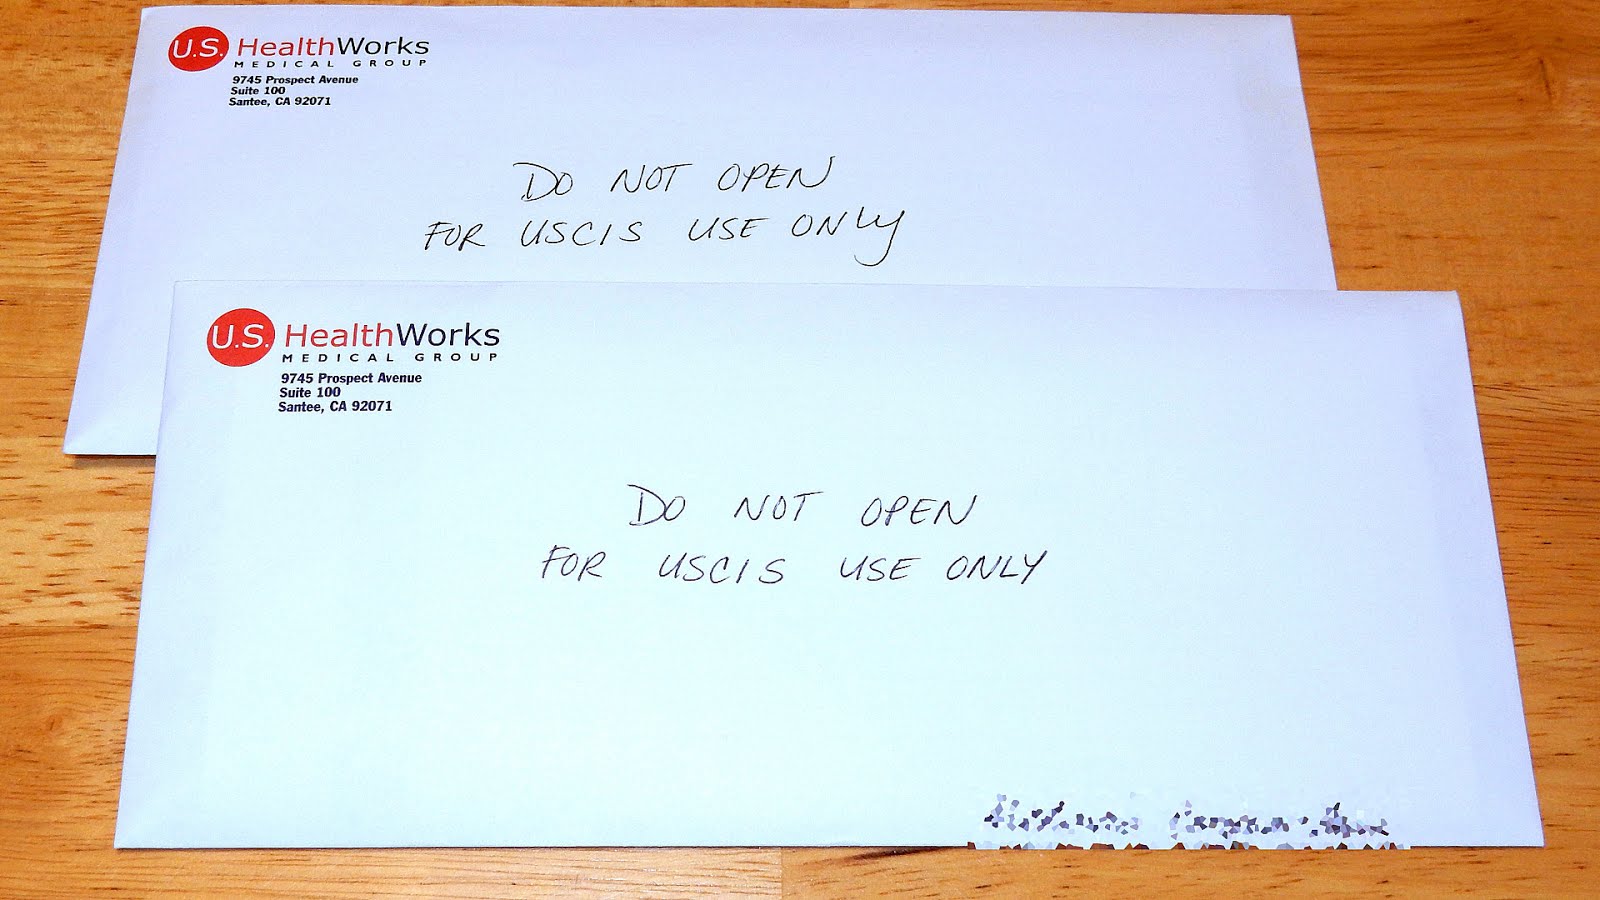 U.S. HealthWorks
MEDICAL GROUP
9745 Prospect Avenue
Suite 100
Santee, CA 92071
DO NOT OPEN
FOR USCIS USE ONLY
U.S. HealthWorks
MEDICAL GROUP
9745 Prospect Avenue
Suite 100
Santee, CA 92071
DO NOT OPEN
FOR USCIS USE ONLY